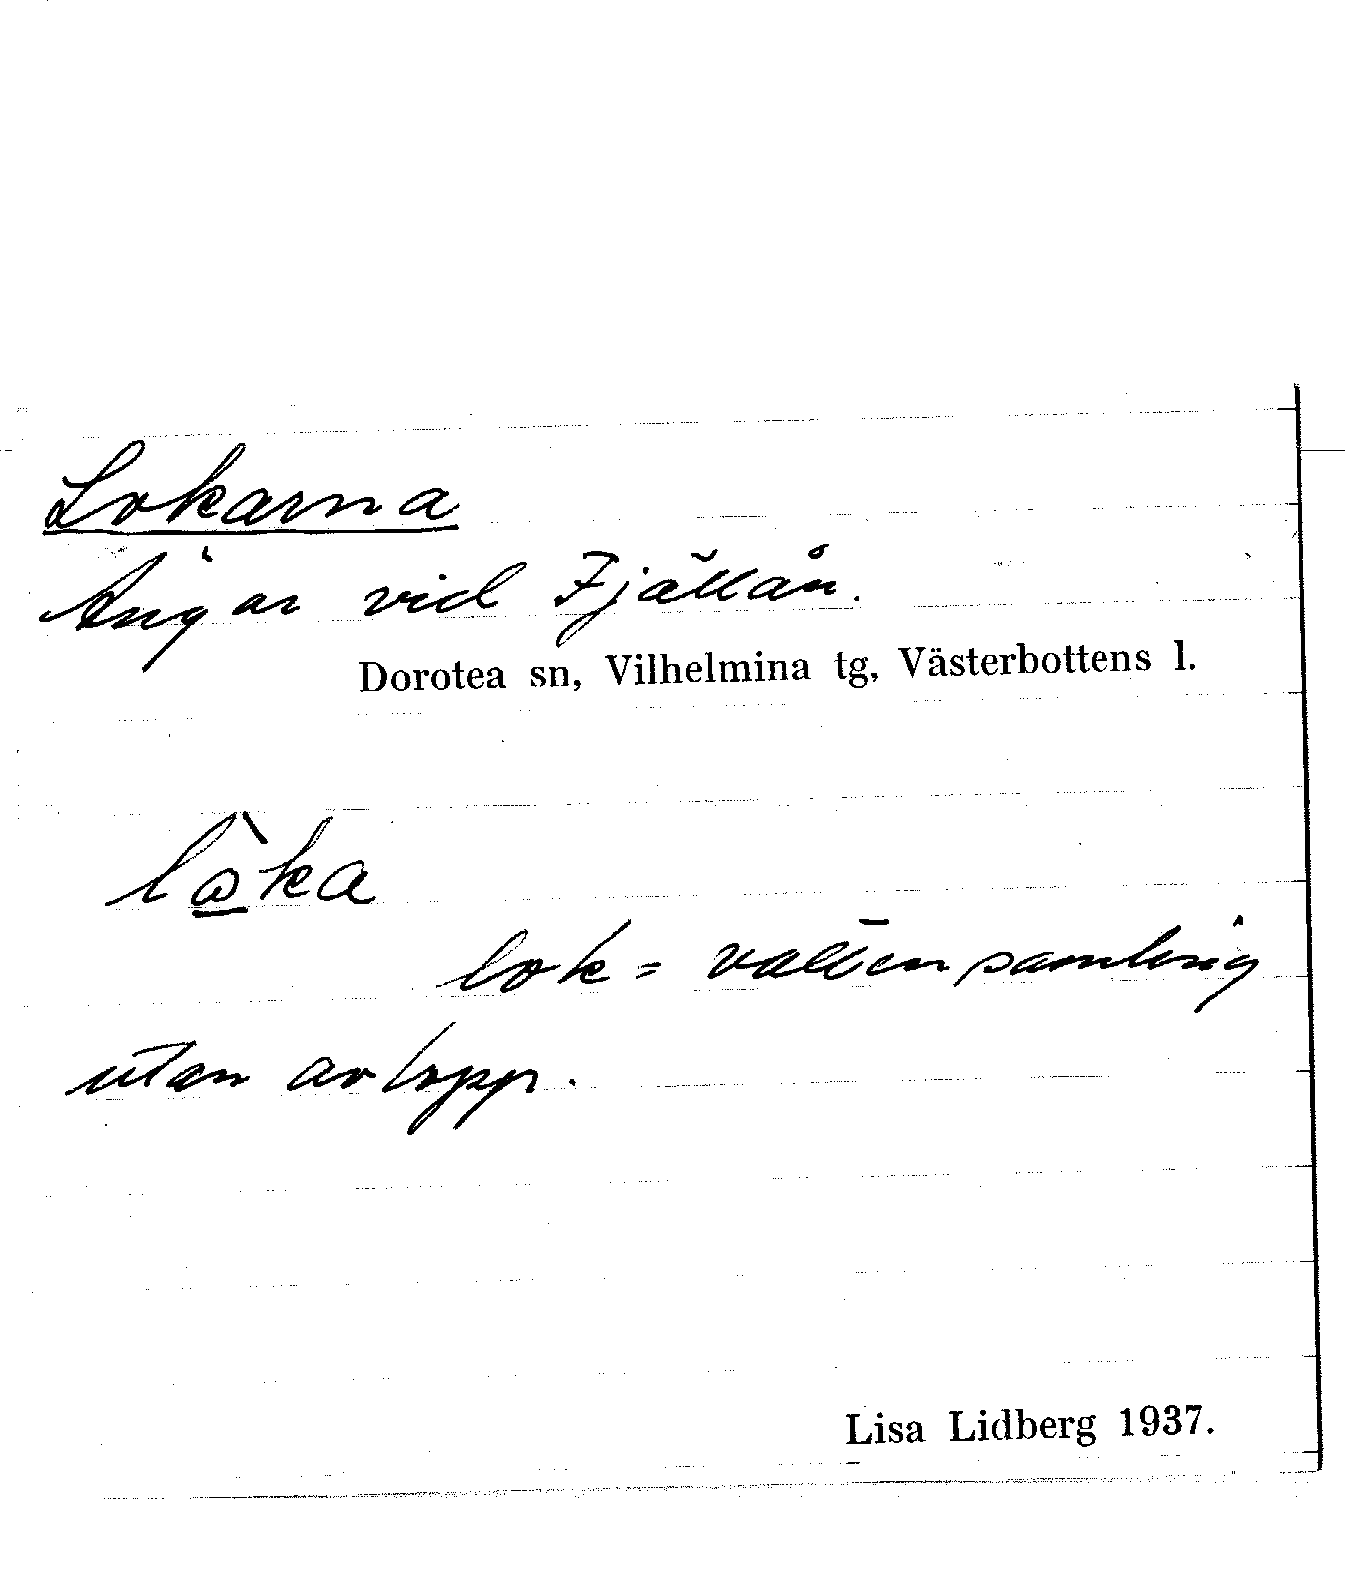 Lokarna
Ängar vid Fjällån.
Dorotea sn, Vilhelmina tg, Västerbottens l.
lò̱ka
lok = vattensamling
utan avlopp.
Lisa Lidberg 1937.